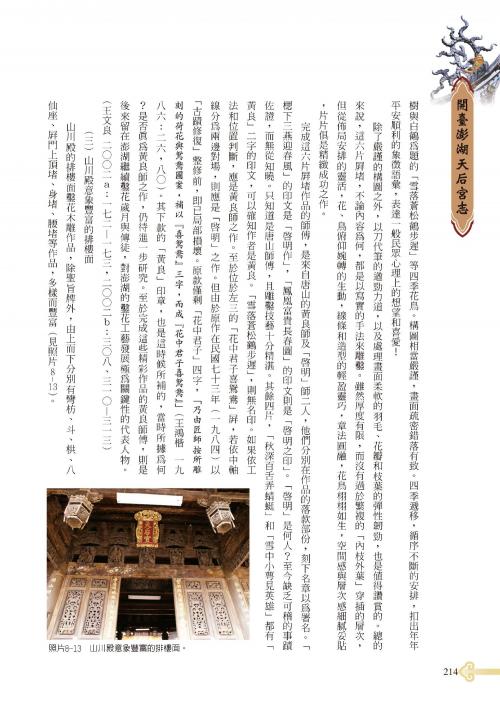 開臺澎湖天后宮志
樹與白鶴爲題的「雪落蒼松鶴步遲」等四季花鳥。構圖相當嚴謹，畫面疏密錯落有致。四季遞移，循序不斷的安排，扣出年年
平安順利的象徵語彙，表達一般民眾心理上的想望和喜愛！
除了嚴謹的構圖之外，以刀代筆的遒勁力道，以及處理畫面柔軟的羽毛、花瓣和枝葉的彈性韌勁，也是值得讚賞的。總的
來說，這六片屏堵，不論內容爲何，都是以寫實的手法來雕鑿。雖然厚度有限，而沒有過於繁複的「內枝外葉」穿插的層次，
但從佈局安排的靈活，花、鳥俯仰婉轉的生動，線條和造型的輕盈靈巧，章法圓融，花鳥栩栩如生，空間感與層次感細膩妥貼
，片片俱是精緻成功之作。
完成這六片屏堵作品的師傅，是來自唐山的黃良師及「啓明」師二人，他們分別在作品的落款部份，刻下名章以爲署名。「
檻下三燕迎春風」的印文是「啓明作」，「鳳凰富貴長春圖」的印文則是「啓明之印」。「啓明」是何人？至今缺乏可稽的事蹟
佐證，而無從知曉。只知道是唐山師傅，且雕鑿技藝十分精湛。其餘四片，「秋深百舌弄蜻蜓」和「雪中小萼見英雄」都有「
黃良」二字的印文，可以確知作者是黃良。「雪落蒼松鶴步遲」，則無名印。如果依工
法和位置判斷，應是黃良師之作。至於位於左三的「花中君子喜鴛鴦」屏，若依中軸
線分爲兩邊對場，則應是「啓明」之作。但由於原作在民國七十三年（一九八四）以
「古蹟修復」整修前，即已局部損壞。原款僅剩「花中君子」四字，「乃由匠師按所雕
刻的荷花與鴛鴦圖案，補以『喜鴛鴦』三字，而成『花中君子喜鴛鴦』」（王鴻楷 一九
八六：二六，八〇）。其下款的「黃良」印章，也是這時候所補的，當時所據爲何
？是否眞爲黃良師之作，仍待進一步研究。至於完成這些精彩作品的黃良師傅，則是
後來留在澎湖繼續鑿花歲月與傳徒，對澎湖的鑿花工藝發展極爲關鍵性的代表人物。
（王文良 二〇〇二a：一七一｜一七三，二〇〇二b：三〇八，三一〇｜三一三）
（三）山川殿意象豐富的排樓面
山川殿的排樓面鑿花木雕作品，除聖旨牌外，由上而下分別有彎枋、斗、栱、八
仙座、屏門上頂堵、身堵、腰堵等作品，多樣而豐富（見照片8-13）。
照片8-13 山川殿意象豐富的排樓面。
214